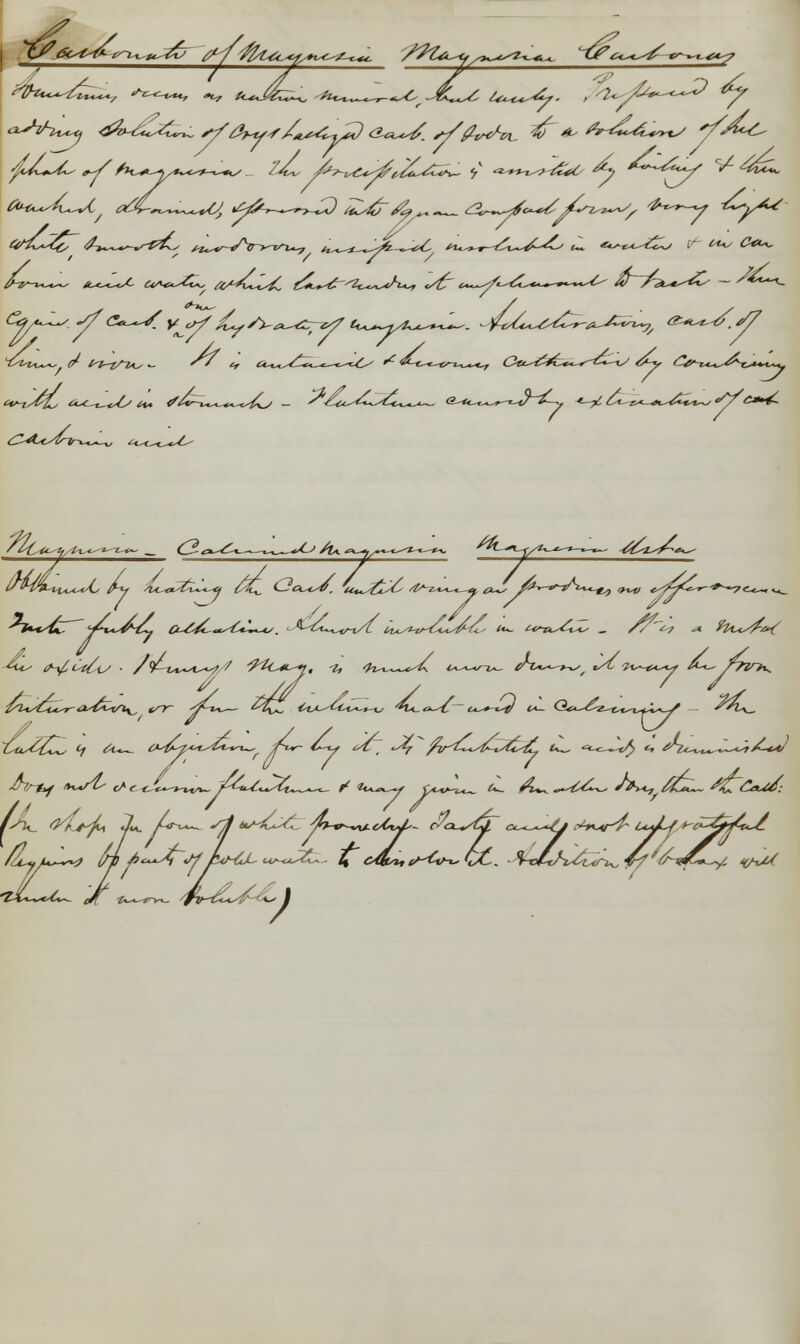 Carbonate of Magnesia Magnesiae Carbonas
Sometimes occurs as native mineral, but rarely. Prepared by
adding Solution of Crystallized Carb. of Soda to a solution of Sul
phate of Magnesia - The precipitation is assisted by boiling & then
washed, drained, & formed into square compact forms, very light
white, smooth, inodorous, insipid, insoluble in water & in Car
bonic acid water, which last renders it unpleasant to taste - Four
Equiv. of Carb. & one of hydrate of magnesia. Adulterations, Carb. of
lime, & iron - It is antacid & becomes Cathartic by Combining
with acid in stomach - Flatulence caused by extrication of
Carbonic acid
Magnesia - Calcined Magnesia Magnesia Usta
Obtained by heating the Carb. until vinegar produces no effervescence
Taste feebly alkaline. Almost insoluble in water - It is a metal
lic oxide. Heavy Mag. is much more dense, it may be from
trituration, or from the intense heat used in Calcining - The
latter is an objection, for by it, its solubility in acids is diminished
Does not occasion flatulence & may given in smaller doses, than the Carb:
(The shops in form of white powder Taste and not ungrateful
Requires parts of cold water to dissolve it. Addition of will
render it more soluble)